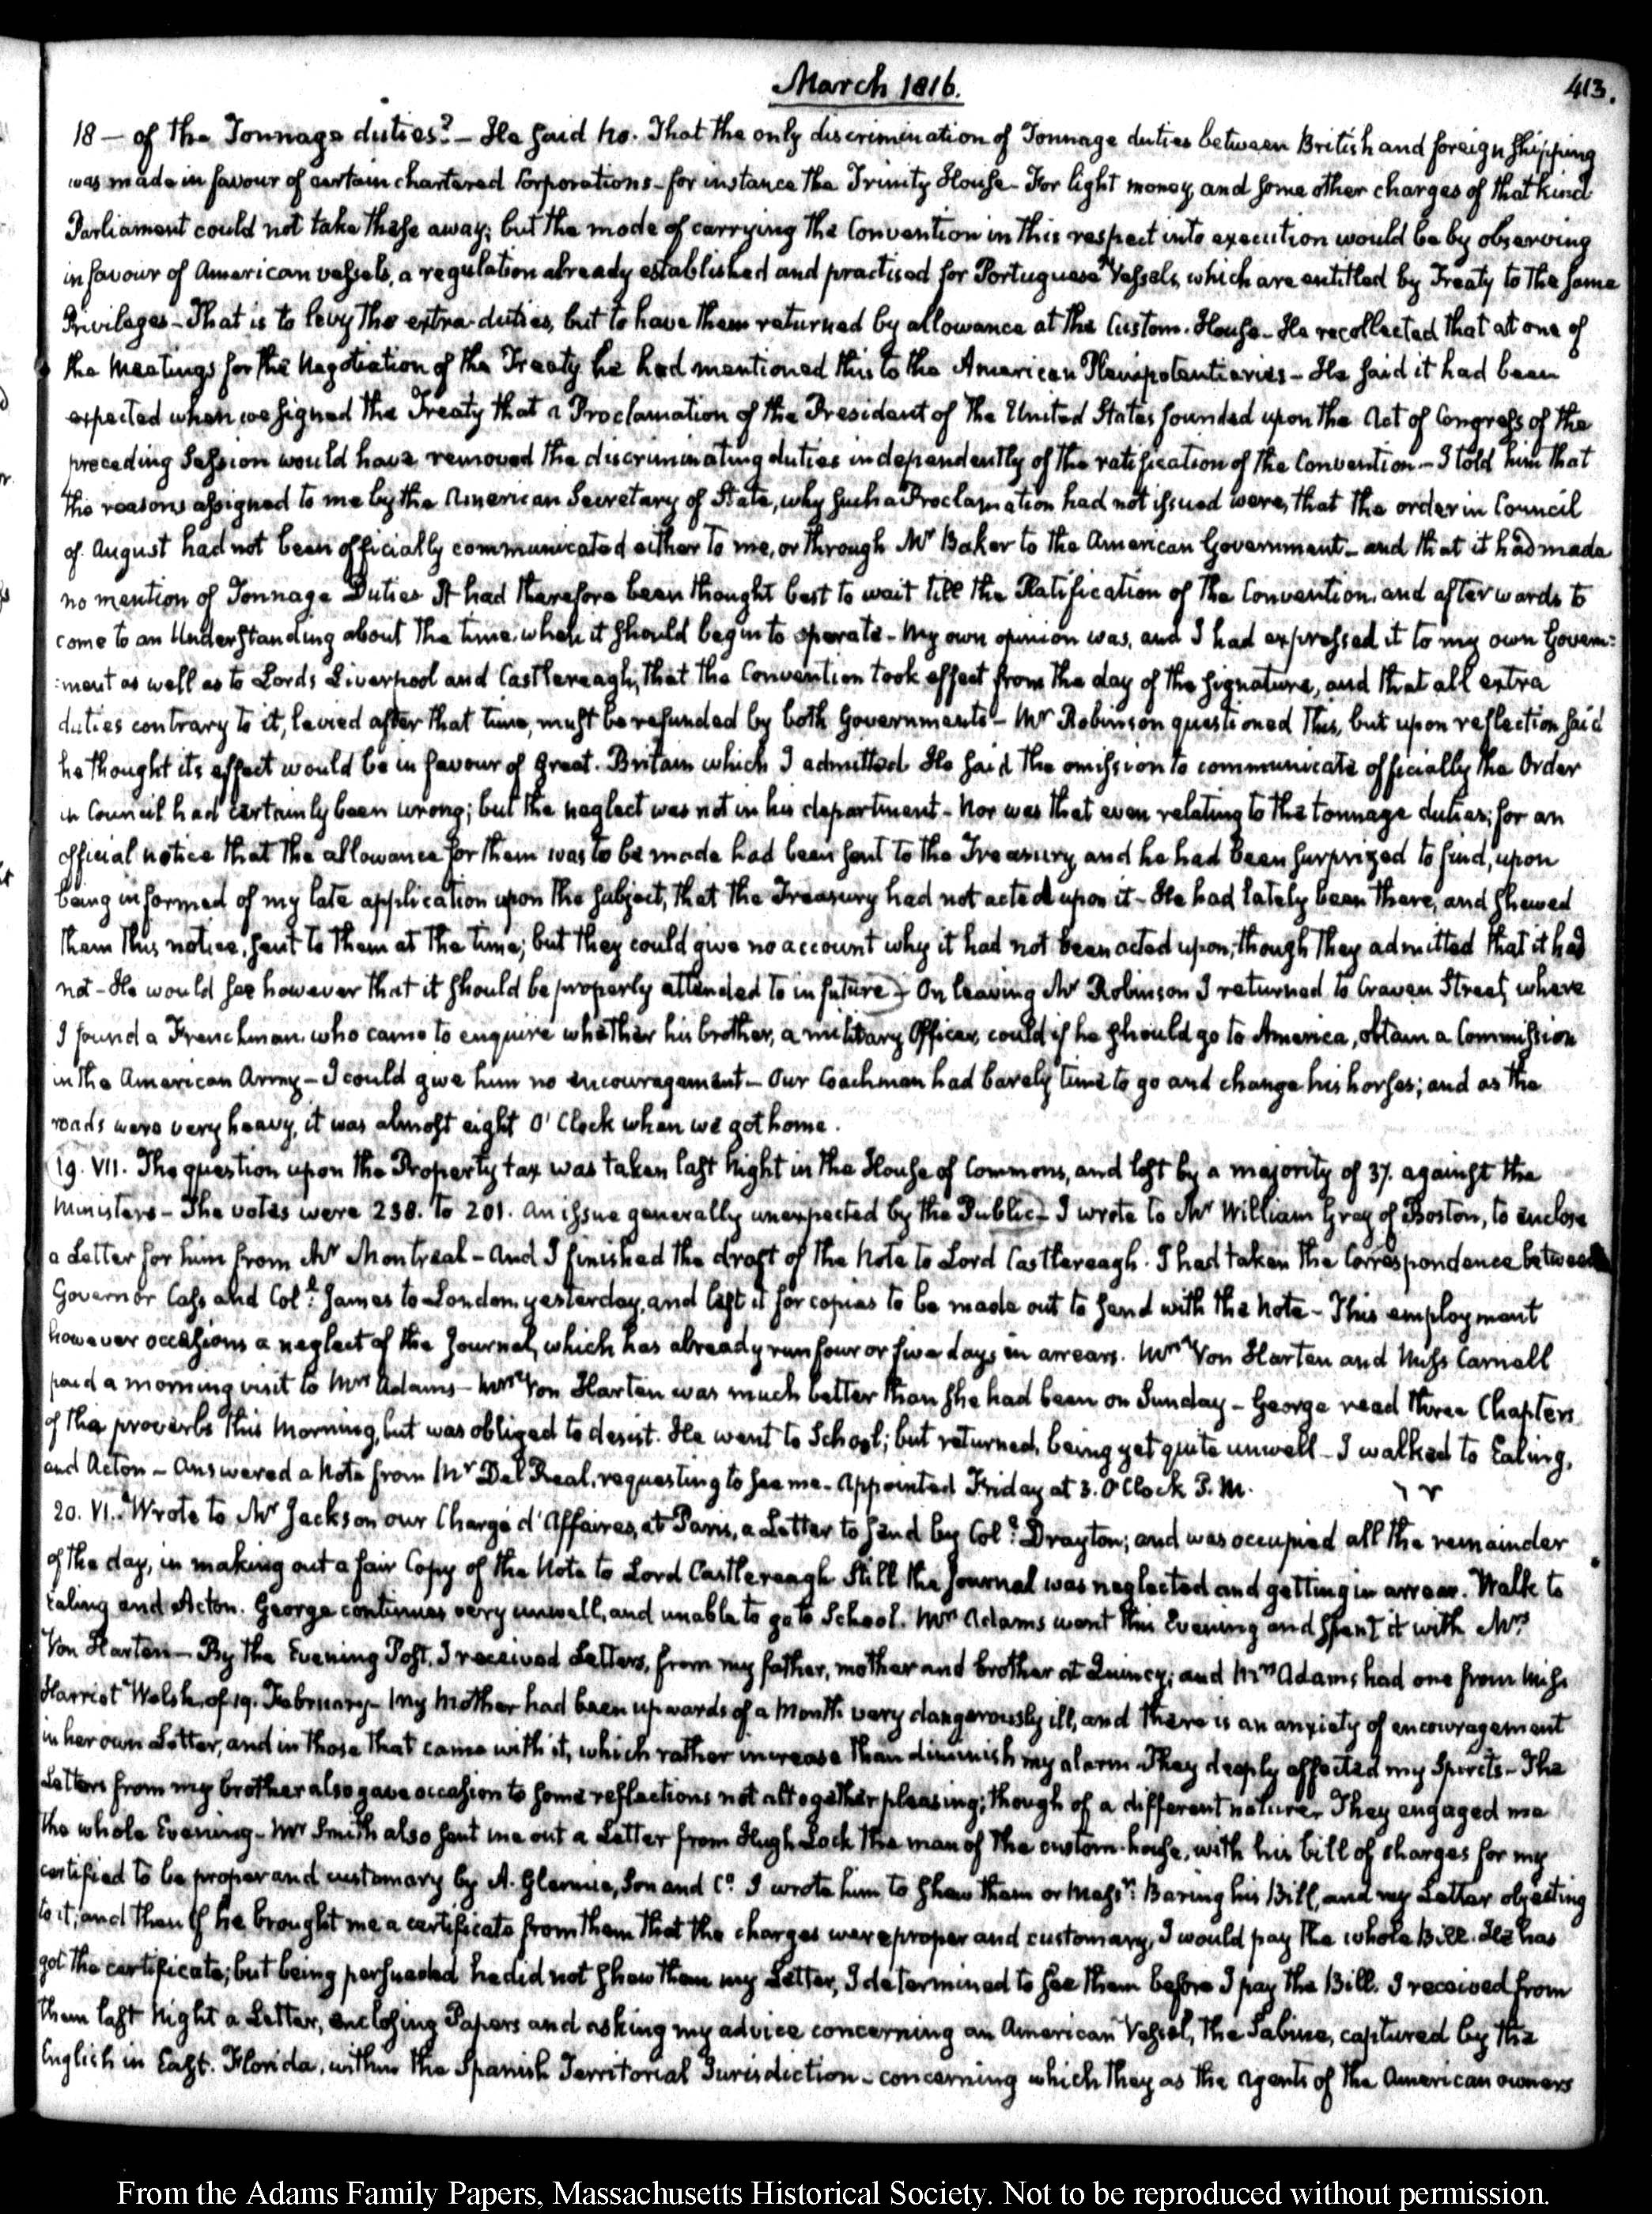 March 1816.
413.
18 — of the Tonnage duties? — He said no. That the only discrimination of Tonnage duties between British and foreign shipping
was made in favour of certain chartered Corporations — for instance the Trinity House — For light money, and some other charges of that kind
Parliament could not take these away; but the mode of carrying the Convention in this respect into execution would be by observing
in favour of American vessels, a regulation already established and practised for Portuguese Vessels, which are entitled by Treaty to the same
Privileges — That is to levy the extra-duties, but to have them returned by allowance at the Custom-House — He recollected that at one of
the meetings for the Negotiation of the Treaty he had mentioned this to the American Plenipotentiaries — He said it had been
expected when we signed the Treaty that a Proclamation of the President of the United States founded upon the Act of Congress of the
preceding Session would have removed the discriminating duties independently of the ratification of the Convention — I told him that
the reasons assigned to me by the American Secretary of State, why such a Proclamation had not issued were, that the order in Council
of August had not been officially communicated either to me, or through Mr Baker to the American Government — and that it had made
no mention of Tonnage Duties It had therefore been thought best to wait till the Ratification of the Convention, and afterwards to
come to an Understanding about the time, when it should begin to operate — My own opinion was, and I had expressed it to my own Govern:
:ment as well as to Lords Liverpool and Castlereagh, that the Convention took effect from the day of the signature, and that all extra
duties contrary to it, levied after that time, must be refunded by both Governments — Mr Robinson questioned this, but upon reflection said
he thought its effect would be in favour of Great-Britain which I admitted He said the omission to communicate officially the Order
in Council had certainly been wrong; but the neglect was not in his department — Nor was that even relating to the tonnage duties; for an
official notice that the allowance for them was to be made had been sent to the Treasury, and he had been surprized to find, upon
being informed of my late application upon the subject, that the Treasury had not acted upon it — He had lately been there, and shewed
them this notice, sent to them at the time; but they could give no account why it had not been acted upon, though they admitted that it had
not — He would see however that it should be properly attended to in future — On leaving Mr Robinson I returned to Craven Street, where
I found a Frenchman, who came to enquire whether his brother, a military Officer, could if he should go to America, obtain a Commission
in the American Army — I could give him no encouragement — Our Coachman had barely time to go and change his horses; and as the
roads were very heavy, it was almost eight O'Clock when we got home.
19. VII. The question upon the Property tax was taken last Night in the House of Commons, and lost by a majority of 37. against the
Ministers — The votes were 238. to 201. An issue generally unexpected by the Public — I wrote to Mr William Gray of Boston, to enclose
a Letter for him from Mr Montreal — And I finished the draft of the Note to Lord Castlereagh. I had taken the Correspondence between
Governor Cass and Coll. James to London yesterday, and left it for copies to be made out to send with the Note — This employment
however occasions a neglect of the Journal, which has already run four or five days in arrears. Mrs Von Harten and Miss Carnall
paid a morning visit to Mrs Adams — Mrs Von Harten was much better than she had been on Sunday — George read three Chapters
of the proverbs this Morning, but was obliged to desist. He went to School; but returned, being yet quite unwell — I walked to Ealing,
and Acton — Answered a Note from Mr Del Real, requesting to see me — Appointed Friday at 3. O'Clock P.M.
20. VI. Wrote to Mr Jackson our Chargé d'Affaires, at Paris, a Letter to send by Coll. Drayton; and was occupied all the remainder
of the day, in making out a fair Copy of the Note to Lord Castlereagh Still the Journal was neglected and getting in arrear. Walk to
Ealing and Acton. George continues very unwell, and unable to go to School. Mrs Adams went this Evening and spent it with Mrs
Von Harten — By the Evening Post, I received Letters, from my father, mother and brother at Quincy; and Mrs Adams had one from Miss
Harriet Welsh, of 19. February — My Mother had been upwards of a Month very dangerously ill, and there is an anxiety of encouragement
in her own Letter, and in those that came with it, which rather increase than diminish my alarm They deeply affected my Spirits — The
Letters from my brother also gave occasion to some reflections not altogether pleasing; though of a different nature. They engaged me
the whole Evening — Mr Smith also sent me out a Letter from Hugh Lock the man of the custom-house, with his bill of charges for my
certified to be proper and customary by A. Glennie, Son and Co. I wrote him to shew them or Messrs. Baring his Bill, and my Letter objecting
to it; and then if he brought me a certificate from them that the charges were proper and customary, I would pay the whole Bill. He has
got the certificate; but being persuaded he did not shew them my Letter, I determined to see them before I pay the Bill. I received from
them last Night a Letter, enclosing Papers and asking my advice concerning an American Vessel, the Sabine, captured by the
English in East-Florida, within the Spanish Territorial Jurisdiction — concerning which they as the Agents of the American owners
From the Adams Family Papers, Massachusetts Historical Society. Not to be reproduced without permission.